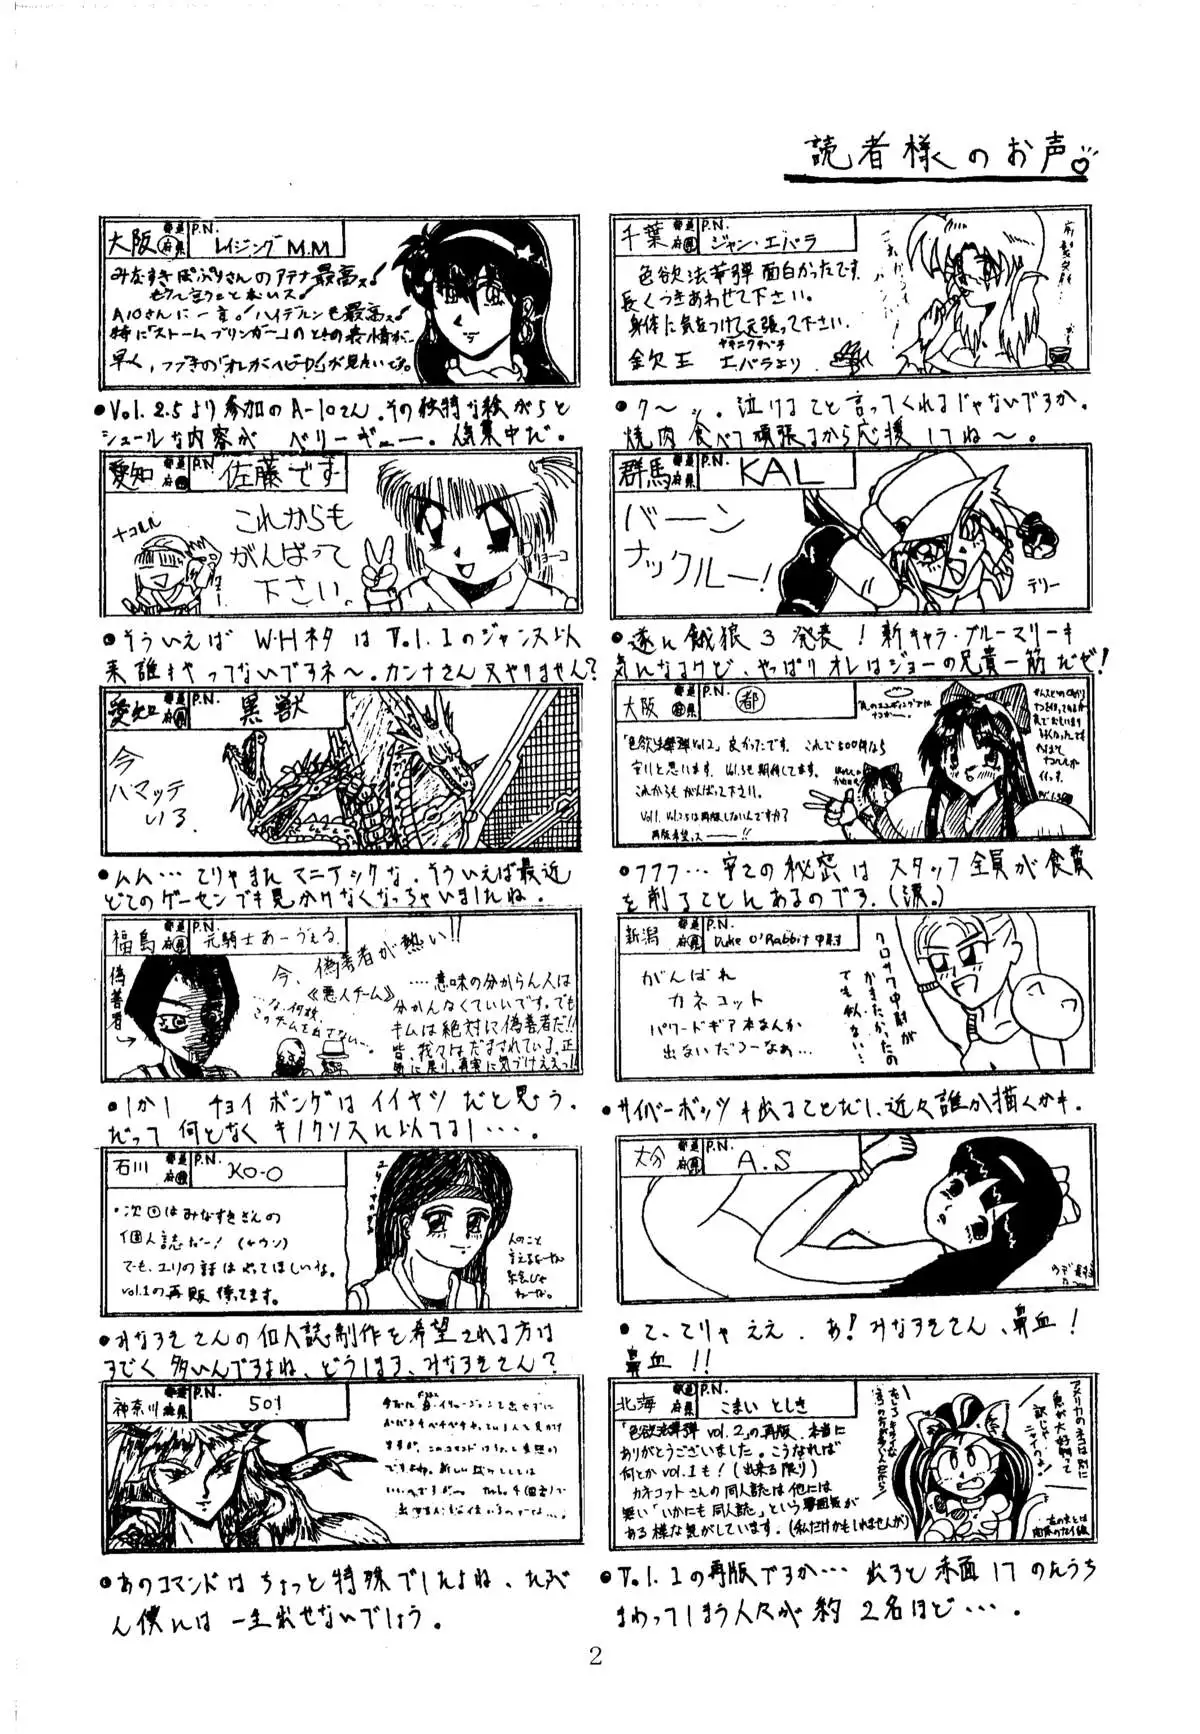 読者様のお声♡
千葉 都道府県
P.N. ジャン・エバラ
色欲法華弾 面白かったです。
長くつきあわせて下さい。
身体に気をつけて頑張って下さい。
エバラより
●ク〜ッ。泣けること言ってくれるじゃないですか。
焼肉食べて頑張るから応援してね〜。
群馬 都道府県
P.N. KAL
バーン
ナックルー!
テリー
●遂に餓狼3発表!新キャラ・ブルーマリーも
気になるけど、やっぱりオレはジョーの兄貴一筋だゼ!
大阪 都道府県
P.N. 都
「色欲法華弾Vol.2」良かったです。これで500円なら
安いと思います。Vol.3も期待してます。
これからもがんばって下さい。
Vol1. Vol2.5は再版しないんですか?
再版希望っス———!!
●フフフ…安さの秘密はスタッフ全員が食費
を削ることにあるのです。(涙。)
新潟 都道府県
P.N. Duke O'Rabbit 中尉
がんばれ
カネコット
パワードギア本なんか
出ないだろーなぁ…
クロサワ中尉が
かきたかったの
でも似ない…
●サイバーボッツも出ることだし、近々誰か描くかも。
大分 都道府県
P.N. A.S
●て、てりゃええ、あ!みなすきさん、鼻血!
鼻血!!
北海 都道府県
P.N. こまい としき
「色欲法華弾 vol.2」の再版、本当に
ありがとうございました。こうなれば
何とかvol.1も!(出来る限り)
カネコットさんの同人誌は他には
無い「いかにも同人誌」という雰囲気が
ある様な気がしています。(私だけかもしれませんが)
アメリカのネコは別に
魚が大好物って
訳じゃ
ニャイのよ!
●Vol.1の再版ですか…出すと赤面してのたうち
まわってしまう人々が約2名ほど…。
大阪 都道府県
P.N. レイジングM.M
みなすきぽぷりさんのアテナ最高っス!
もう言うことないス!
A10さんに一言!ハイデルンも最高っス!
特に「ストームブリンガー」のときの表情が…
早く、つづきの「オレがヘビーD!」が見たいです。
●Vol.2.5より参加のA-10さん。その独特な絵がらと
シュールな内容がベリーギュー。人気集中だ。
愛知 都道府県
P.N. 佐藤です
これからも
がんばって
下さい。
ナコルル
リョーコ
●そういえばW・HネタはVol.1のジャンヌ以
来誰もやってないですネ〜。カンナさん又やりません?
愛知 都道府県
P.N. 黒獣
今
ハマッテ
いる.
●ムム…てりゃまたマニアックな。そういえば最近
どこのゲーセンでも見かけなくなっちゃいましたね。
福島 都道府県
P.N. 元騎士あーヴぇる.
今、偽善者が熱い!!
《悪人チーム》
…な、何故、
このチームを出さない…。
偽善者→
……意味の分からん人は
分かんなくていいです。でも
キムは絶対に偽善者だ!!
皆、我々はだまされている。正
気に戻り、真実に気づけええっ!!
●しかしチョイボンゲはイイヤツだと思う。
だって何となくキノクリスに似てるし…。
石川 都道府県
P.N. KO-O
・次回はみなすきさんの
個人誌だー!(ちウソ)
でも、ユリの話はやってほしいな。
vol.1の再販 待ってます。
●みなすきさんの個人誌制作を希望される方は
すごく多いんですよね、どうします、みなすきさん?
神奈川 都道府県
P.N. 501
●あのコマンドはちょっと特殊でしたよね、たぶ
ん僕には一生出せないでしょう。
2